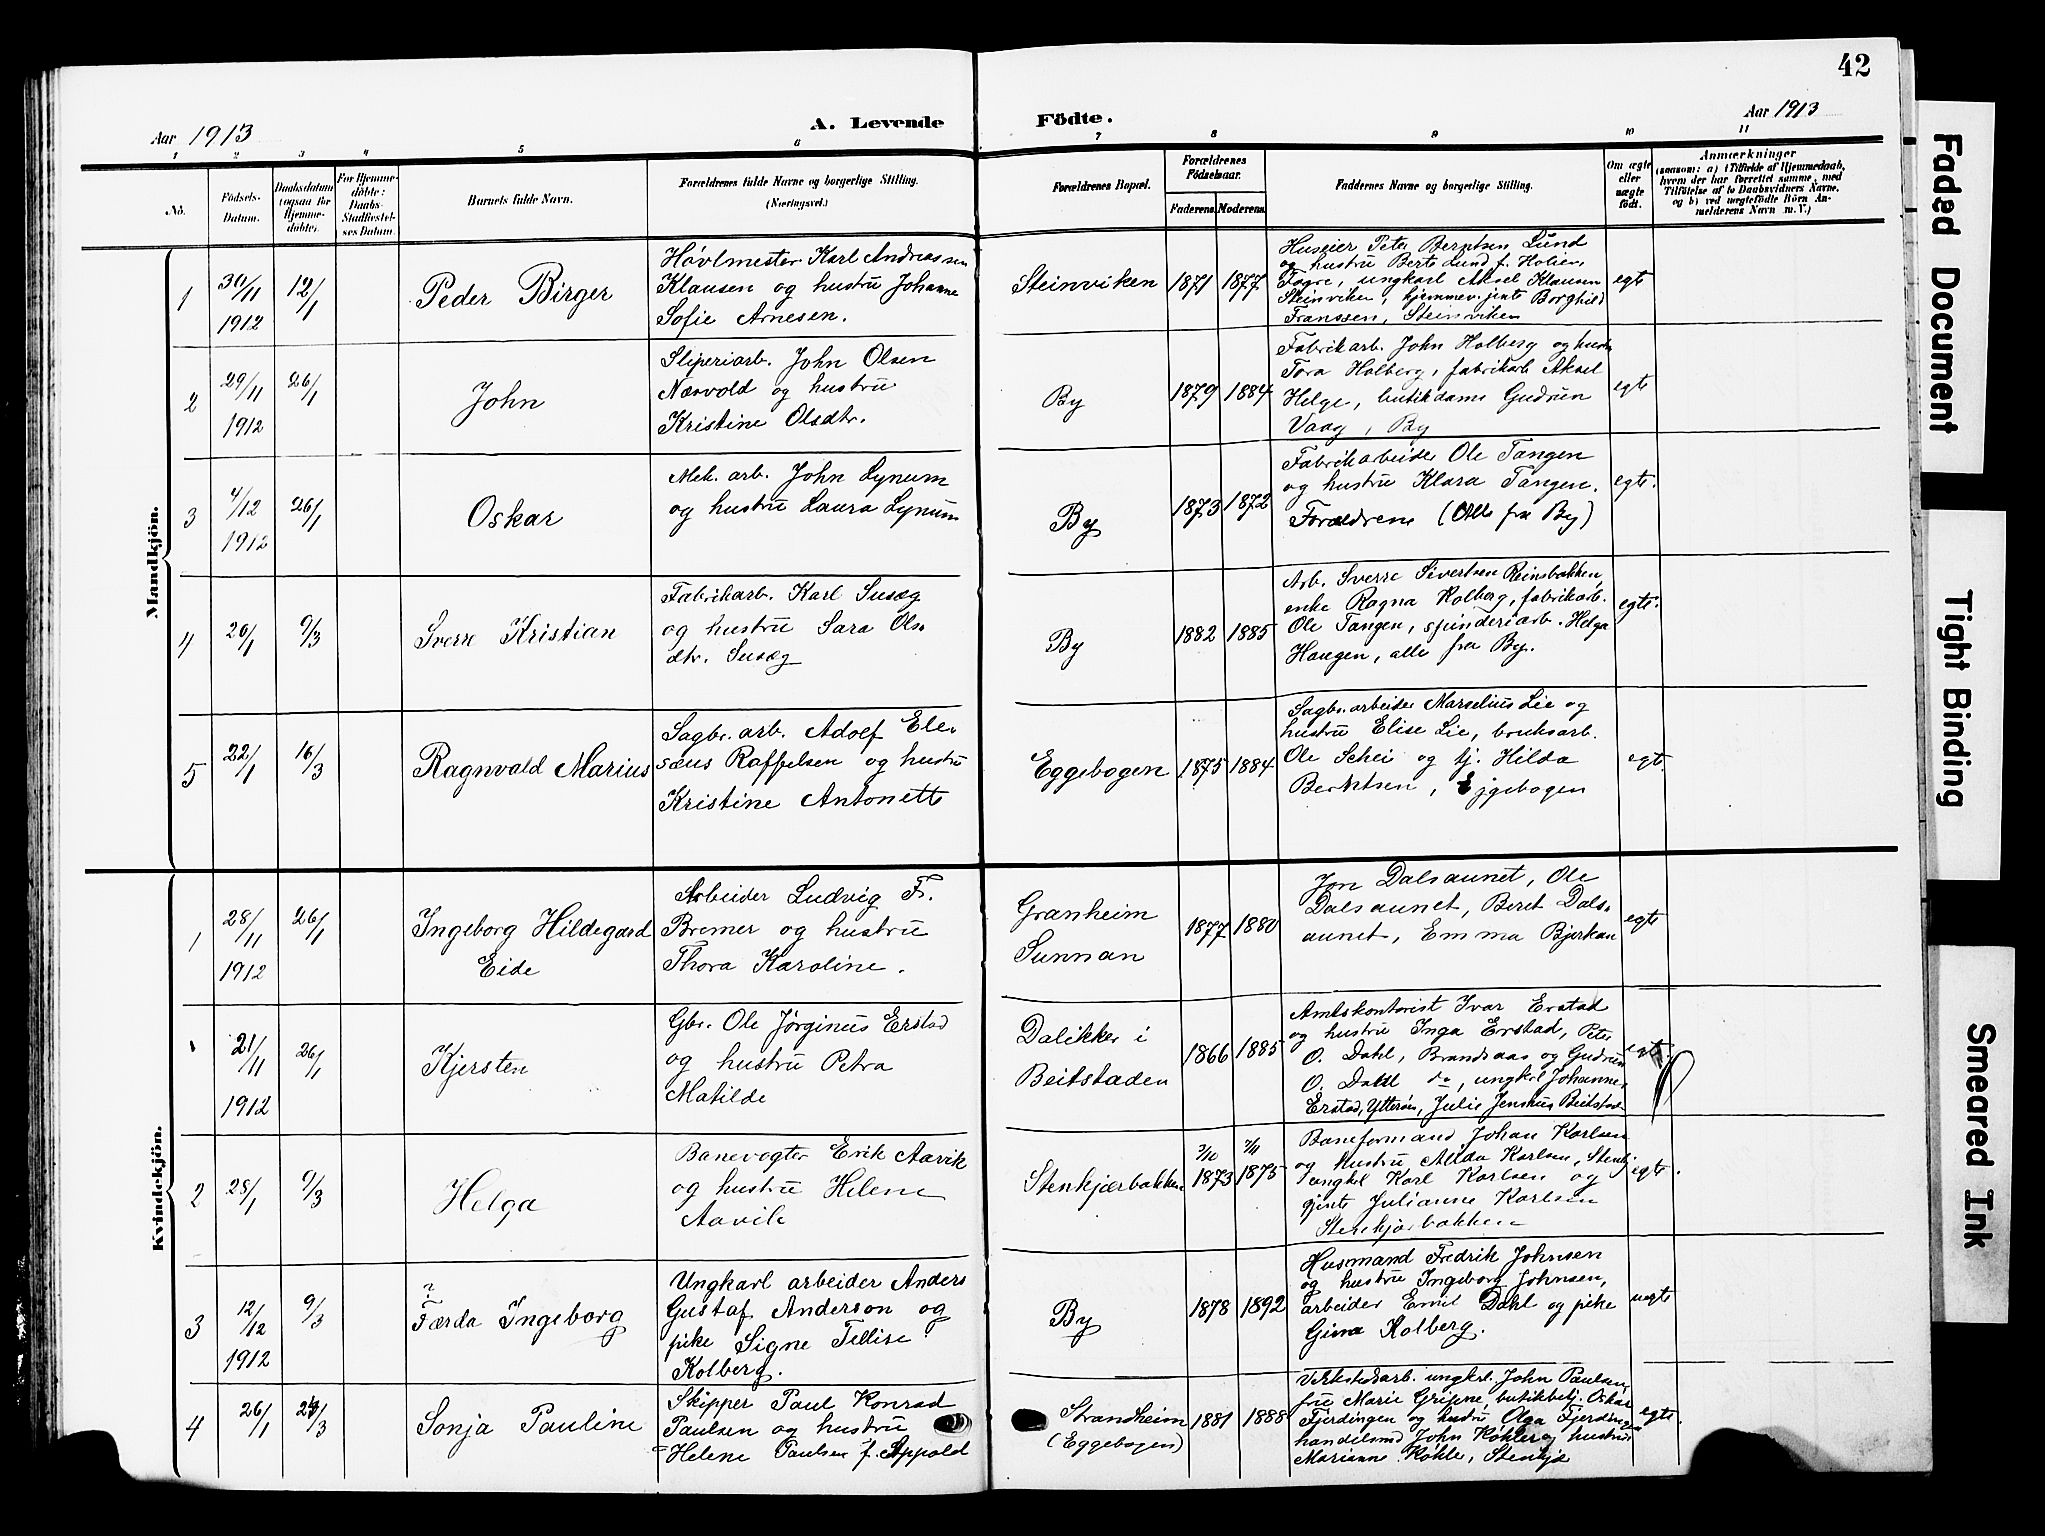 42
Aar 1913
A. Levende Födte.
Aar 1913
1 2 3 4 5 6 7 8 9 10 11
No.
Födsels-Datum.
Daabsdatum (ogsaa for Hjemme-döbte).
For Hjemme-döbte: Daabs-Stadfæstel-ses Datum.
Barnets fulde Navn.
Forældrenes fulde Navne og borgerlige Stilling.
(Næringsvei.)
Forældrenes Bopæl.
Forældrenes Födselsaar.
Faderens. Moderens.
Faddernes Navne og borgerlige Stilling.
Om ægte eller uægte födt.
Anmærkninger
(saasom: a) i Tilfælde af Hjemmedaab,
hvem der har forrettet samme, med
Tilföielse af to Daabsvidners Navne,
og b) ved uægtefödte Börn An-
melderens Navn m. V.)
Mandkjön.
1
30/11 1912
12/1
Peder Birger
Høvlmester Karl Andreassen
Klausen og hustru Johanne
Sofie Arnesen.
Steinviken
1871 1877
Huseier Peter Berntsen Lund
og hustru Berte Lund f. Holien
Fagre, ungkarl Aksel Klausen
Steinviken, hjemmev. jente Borghild
Franssen, Steinviken
egte
2
29/11 1912
26/1
John
Sliperiarb. John Olsen
Næsvold og hustru
Kristine Olsdtr.
By
1879 1884
Fabrikarb. John Holberg og hustru
Tora Holberg, fabrikarb Aksel
Helge, butikdame Gudrun
Vaag, By
egte
3
4/12 1912
26/1
Oskar
Mek. arb. John Lynum
og hustru Laura Lynum
By
1873 1872
Fabrikarbeider Ole Tangen
og hustru Klara Tangen.
Forældrene (Alle fra By)
egte.
4
26/1
9/3
Sverre Kristian
Fabrikarb. Karl Susæg
og hustru Sara Ols-
dtr. Susæg
By
1882 1885
Arb. Sverre Sivertsen Reinsbakken,
enke Ragna Kolberg, fabrikarb.
Ole Tangen, spinderiarb. Helga
Haugen, alle fra By.
egte.
5
22/1
16/3
Ragnvald Marius
Sagbr. arb. Adolf Ele-
sæus Raffelsen og hustru
Kristine Antonette
Eggebogen
1875 1884
Sagbr. arbeider Marselius Lie og
hustru Elise Lie, bruksarb.
Ole Schei og tj. Hilda
Berntsen, Eggebogen
egte.
Kvindekjön.
1
28/11 1912
26/1
Ingeborg Hildegard
Eide
Arbeider Ludvig Fr.
Bremer og hustru
Thora Karoline.
Granheim
Sunnan
1877 1880
Jon Dalsaunet, Ole
Dalsaunet, Beret Dals-
aunet, Emma Bjerkan
egte
21/11 1912
26/1
Kjersten
Gbr. Ole Jørginus Erstad
og hustru Petra
Matilde
Dalikker i
Beitstaden
1866 1885
Amtskontorist Ivar Erstad
og hustru Inga Erstad, Peter
O. Dahl, Brandsaas og Gudrun
O. Dahl do, ungkrl Johannes
Erstad, Ytterøen, Julie Jenshus Beitstad
egte.
2
28/1
9/3
Helga
Banevogter Erik Aavik
og hustru Helene
Aavik
Stenkjærbakken
1873 1875
Baneformand Johan Karlsen
og hustru Alida Karlsen, Stenkj.
ungkl Karl Karlsen og
gjente Julianne Karlsen
Stenkjærbakken
egte.
3
12/12 1912
9/3
?
Færda Ingeborg
Ungkarl arbeider Anders
Gustaf Anderson og
pike Signe Tellise
Kolberg.
By
1878 1892
Husmand Fredrik Johnsen
og hustru Ingeborg Johnsen,
arbeider Emil Dahl og pike
Gina Kolberg.
uegte
4
26/1
24/3
Sonja Pauline
Skipper Paul Konrad
Paulsen og hustru
Helene Paulsen f. Appold
Strandheim
(Eggebogen)
1881 1888
Verkstedsarb. ungkrl. John Paulsen,
fru Marie Grippe, butikbetj. Oskar
Fjerdingen og hustru Olga Fjerdingen
handelsmd John Køhler og hustru
Marianne Køhler, Stenkjær
egte.
Faded Document
Tight Binding
Smeared Ink